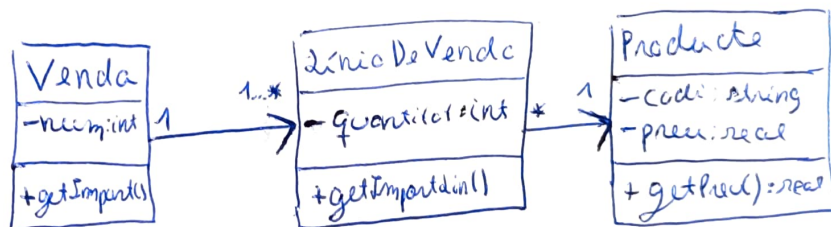 Venda
-num:int
+getImport()
1
1...*
LíniaDeVenda
- quantitat:int
+getImportLin()
*
1
Producte
-codi:string
-preu:real
+ getPreu():real